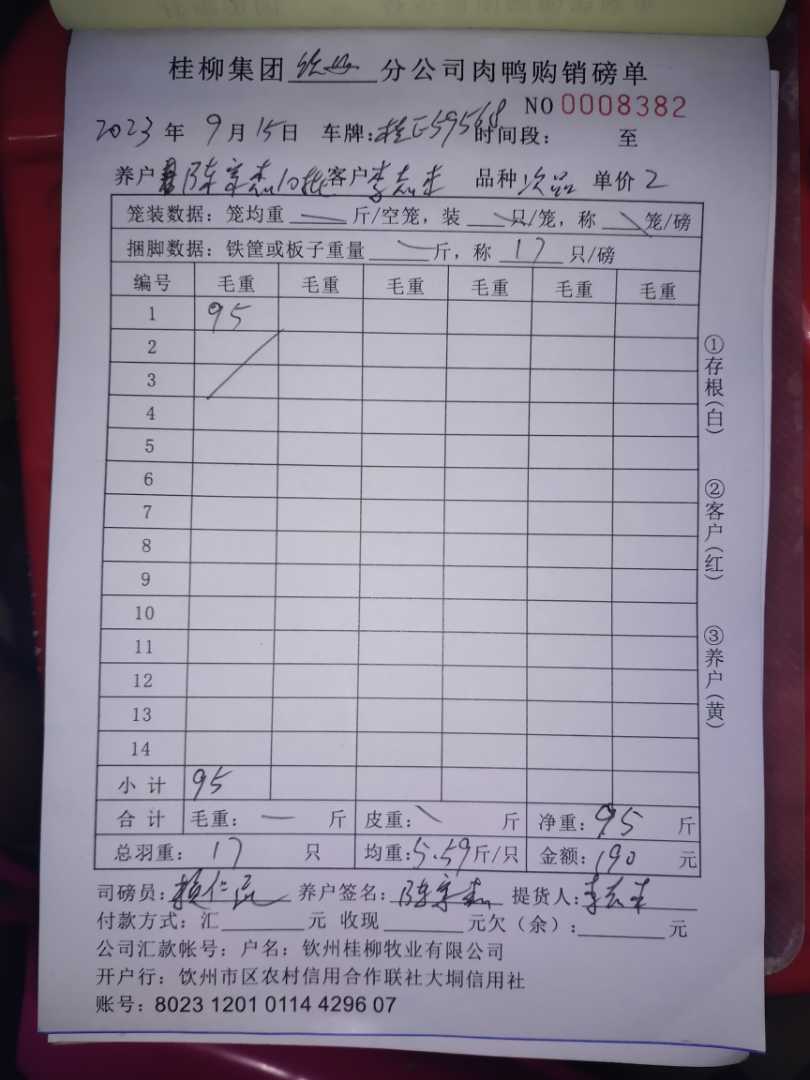 桂柳集团 钦州 分公司肉鸭购销磅单
NO 0008382
2023 年 9 月 15 日 车牌: 时间段: 至
养户 陈 客户 李志 品种 次品 单价 2
笼装数据: 笼均重 斤/空笼, 装 只/笼, 称 笼/磅
捆脚数据: 铁筐或板子重量 斤, 称 17 只/磅
编号 毛重 毛重 毛重 毛重 毛重 毛重
1 95
2
3
4
5
6
7
8
9
10
11
12
13
14
小 计 95
合 计 毛重: 一 斤 皮重: 斤 净重: 95 斤
总羽重: 17 只 均重: 5.59 斤/只 金额: 190 元
司磅员: 养户签名: 陈 提货人: 李志
付款方式: 汇 元 收现 元欠(余): 元
公司汇款帐号: 户名: 钦州桂柳牧业有限公司
开户行: 钦州市区农村信用合作联社大垌信用社
账号: 8023 1201 0114 4296 07
①存根(白)
②客户(红)
③养户(黄)